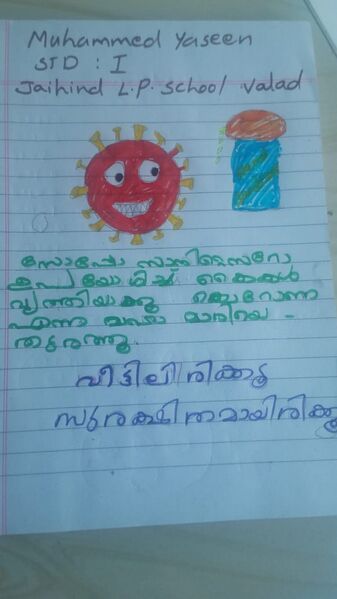 Muhammed Yaseen
STD : I
Jaihind L.P. School Valad
സോപ്പോ സാനിടൈസറോ
ഉപയോഗിച്ച് കൈകൾ
വൃത്തിയാക്കൂ കൊറോണ
എന്ന മഹാ മാരിയെ -
തുരത്തൂ.
വീട്ടിലിരിക്കൂ
സുരക്ഷിതമായിരിക്കൂ